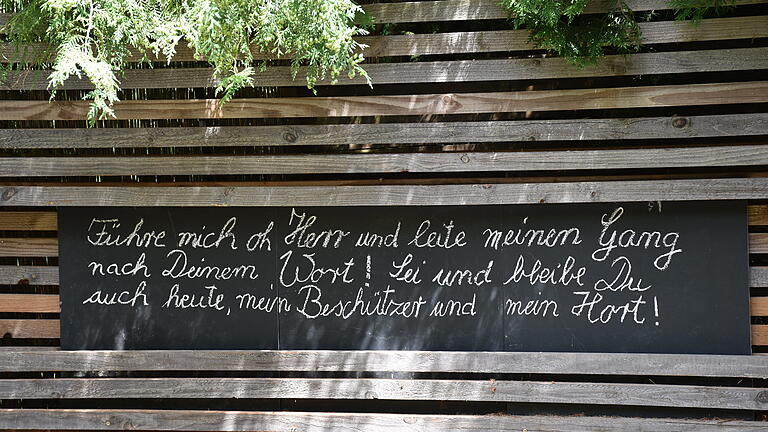 Führe mich oh Herr und leite meinen Gang
nach Deinem Wort! Sei und bleibe Du
auch heute, mein Beschützer und mein Hort!